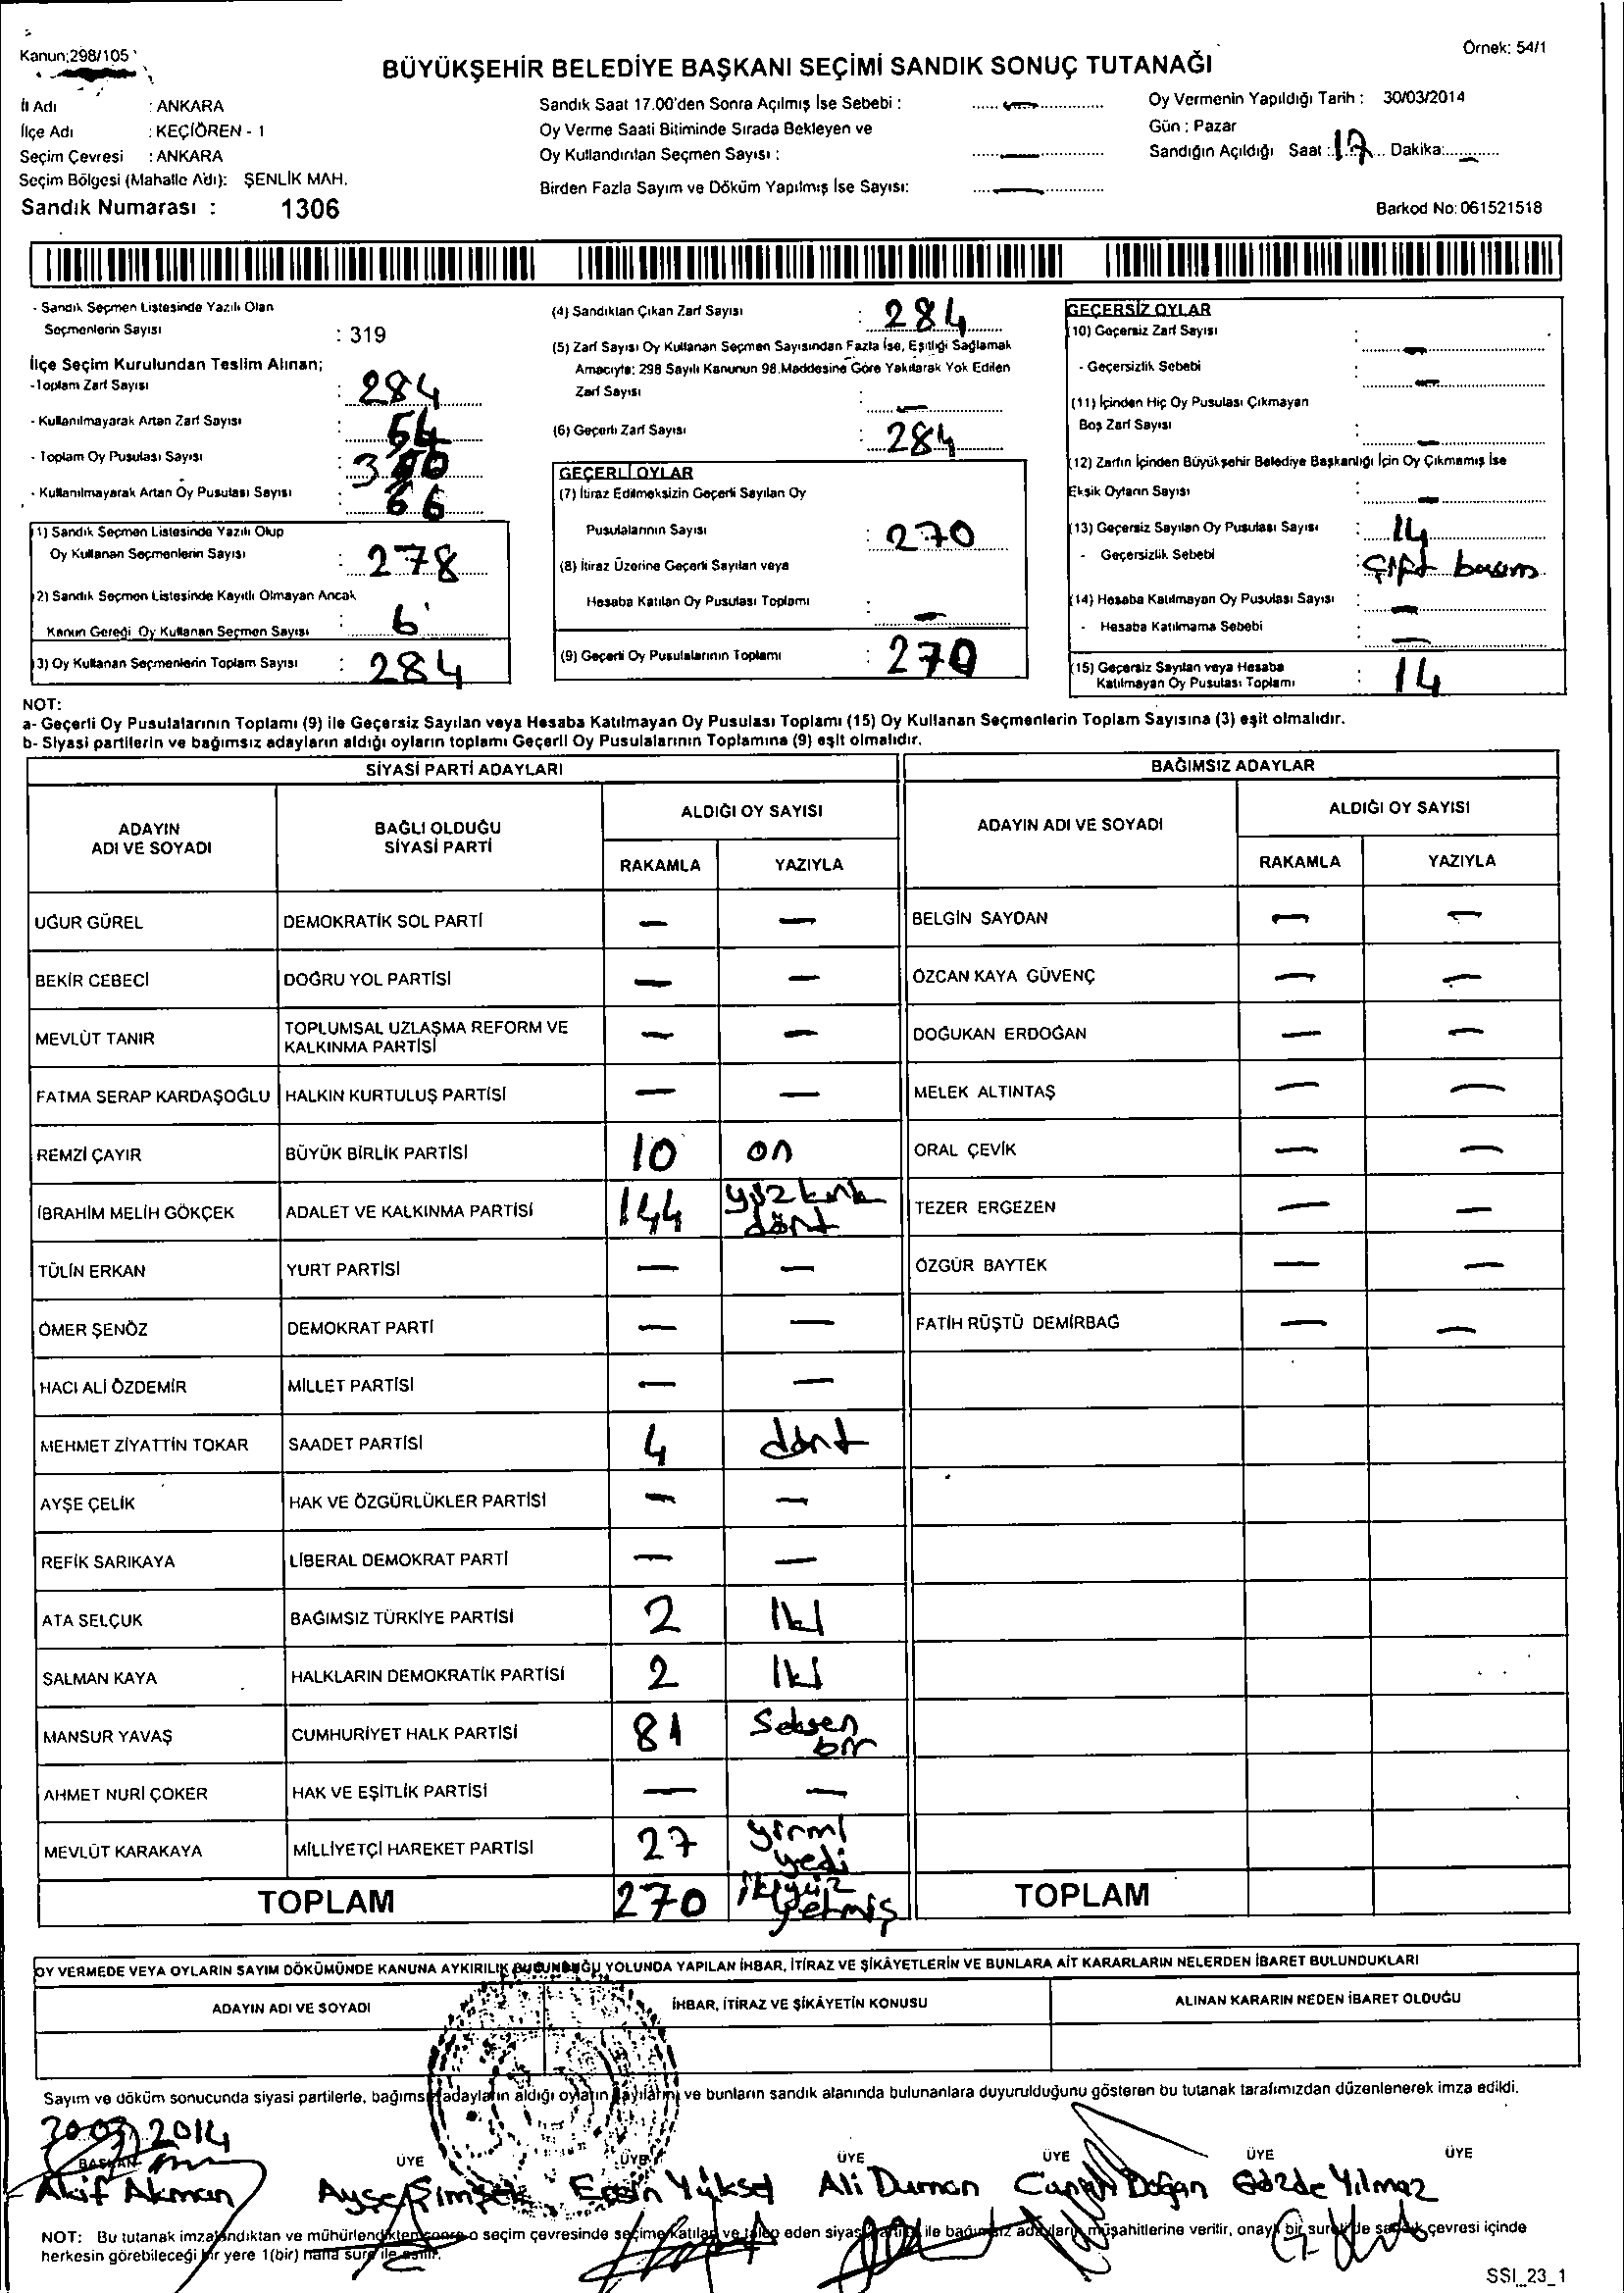 Kanun;298/105
Örnek: 54/1
BÜYÜKŞEHİR BELEDİYE BAŞKANI SEÇİMİ SANDIK SONUÇ TUTANAĞI
İl Adı : ANKARA
İlçe Adı : KEÇİÖREN - 1
Seçim Çevresi : ANKARA
Seçim Bölgesi (Mahalle Adı): ŞENLİK MAH.
Sandık Numarası : 1306
Sandık Saat 17.00'den Sonra Açılmış İse Sebebi : —
Oy Verme Saati Bitiminde Sırada Bekleyen ve
Oy Kullandırılan Seçmen Sayısı : —
Birden Fazla Sayım ve Döküm Yapılmış İse Sayısı: —
Oy Vermenin Yapıldığı Tarih : 30/03/2014
Gün : Pazar
Sandığın Açıldığı Saat : 17 Dakika: —
Barkod No: 061521518
- Sandık Seçmen Listesinde Yazılı Olan
Seçmenlerin Sayısı : 319
İlçe Seçim Kurulundan Teslim Alınan;
-Toplam Zarf Sayısı : 284
- Kullanılmayarak Artan Zarf Sayısı :
- Toplam Oy Pusulası Sayısı :
- Kullanılmayarak Artan Oy Pusulası Sayısı : 66
(1) Sandık Seçmen Listesinde Yazılı Olup
Oy Kullanan Seçmenlerin Sayısı : 278
(2) Sandık Seçmen Listesinde Kayıtlı Olmayan Ancak
Kanun Gereği Oy Kullanan Seçmen Sayısı : 6
(3) Oy Kullanan Seçmenlerin Toplam Sayısı : 284
(4) Sandıktan Çıkan Zarf Sayısı : 284
(5) Zarf Sayısı Oy Kullanan Seçmen Sayısından Fazla İse, Eşitliği Sağlamak
Amacıyla: 298 Sayılı Kanunun 98.Maddesine Göre Yakılarak Yok Edilen
Zarf Sayısı : —
(6) Geçerli Zarf Sayısı : 284
GEÇERLİ OYLAR
(7) İtiraz Edilmeksizin Geçerli Sayılan Oy
Pusulalarının Sayısı : 270
(8) İtiraz Üzerine Geçerli Sayılan veya
Hesaba Katılan Oy Pusulası Toplamı : —
(9) Geçerli Oy Pusulalarının Toplamı : 270
GEÇERSİZ OYLAR
(10) Geçersiz Zarf Sayısı : —
- Geçersizlik Sebebi : —
(11) İçinden Hiç Oy Pusulası Çıkmayan
Boş Zarf Sayısı : —
(12) Zarfın İçinden Büyükşehir Belediye Başkanlığı İçin Oy Çıkmamış İse
Eksik Oyların Sayısı : —
(13) Geçersiz Sayılan Oy Pusulası Sayısı : 14
- Geçersizlik Sebebi : Çift basım
(14) Hesaba Katılmayan Oy Pusulası Sayısı : —
- Hesaba Katılmama Sebebi : —
(15) Geçersiz Sayılan veya Hesaba
Katılmayan Oy Pusulası Toplamı : 14
NOT:
a- Geçerli Oy Pusulalarının Toplamı (9) ile Geçersiz Sayılan veya Hesaba Katılmayan Oy Pusulası Toplamı (15) Oy Kullanan Seçmenlerin Toplam Sayısına (3) eşit olmalıdır.
b- Siyasi partilerin ve bağımsız adayların aldığı oyların toplamı Geçerli Oy Pusulalarının Toplamına (9) eşit olmalıdır.
SİYASİ PARTİ ADAYLARI
ADAYIN
ADI VE SOYADI
BAĞLI OLDUĞU
SİYASİ PARTİ
ALDIĞI OY SAYISI
RAKAMLA YAZIYLA
UĞUR GÜREL DEMOKRATİK SOL PARTİ — —
BEKİR CEBECİ DOĞRU YOL PARTİSİ — —
MEVLÜT TANIR TOPLUMSAL UZLAŞMA REFORM VE
KALKINMA PARTİSİ — —
FATMA SERAP KARDAŞOĞLU HALKIN KURTULUŞ PARTİSİ — —
REMZİ ÇAYIR BÜYÜK BİRLİK PARTİSİ 10 on
İBRAHİM MELİH GÖKÇEK ADALET VE KALKINMA PARTİSİ 144 yüz kırk
dört
TÜLİN ERKAN YURT PARTİSİ — —
ÖMER ŞENÖZ DEMOKRAT PARTİ — —
HACI ALİ ÖZDEMİR MİLLET PARTİSİ — —
MEHMET ZİYATTİN TOKAR SAADET PARTİSİ 4 dört
AYŞE ÇELİK HAK VE ÖZGÜRLÜKLER PARTİSİ — —
REFİK SARIKAYA LİBERAL DEMOKRAT PARTİ — —
ATA SELÇUK BAĞIMSIZ TÜRKİYE PARTİSİ 2 İki
SALMAN KAYA HALKLARIN DEMOKRATİK PARTİSİ 2 İki
MANSUR YAVAŞ CUMHURİYET HALK PARTİSİ 81 Seksen
bir
AHMET NURİ ÇOKER HAK VE EŞİTLİK PARTİSİ — —
MEVLÜT KARAKAYA MİLLİYETÇİ HAREKET PARTİSİ 27 yirmi
yedi
TOPLAM 270 ikiyüz
yetmiş
BAĞIMSIZ ADAYLAR
ADAYIN ADI VE SOYADI
ALDIĞI OY SAYISI
RAKAMLA YAZIYLA
BELGİN SAYDAN — —
ÖZCAN KAYA GÜVENÇ — —
DOĞUKAN ERDOĞAN — —
MELEK ALTINTAŞ — —
ORAL ÇEVİK — —
TEZER ERGEZEN — —
ÖZGÜR BAYTEK — —
FATİH RÜŞTÜ DEMİRBAĞ — —
TOPLAM
OY VERMEDE VEYA OYLARIN SAYIM DÖKÜMÜNDE KANUNA AYKIRILIK BULUNDUĞU YOLUNDA YAPILAN İHBAR, İTİRAZ VE ŞİKÂYETLERİN VE BUNLARA AİT KARARLARIN NELERDEN İBARET BULUNDUKLARI
ADAYIN ADI VE SOYADI İHBAR, İTİRAZ VE ŞİKÂYETİN KONUSU ALINAN KARARIN NEDEN İBARET OLDUĞU
Sayım ve döküm sonucunda siyasi partilerle, bağımsız adayların aldığı oyların sayılarını ve bunların sandık alanında bulunanlara duyurulduğunu gösteren bu tutanak tarafımızdan düzenlenerek imza edildi.
30.03.2014
BAŞKAN ÜYE ÜYE ÜYE ÜYE ÜYE ÜYE
Akif Akman Ayşe Şimşek Ersin Yüksel Ali Duman Canan Doğan Gözde Yılmaz
NOT: Bu tutanak imzalandıktan ve mühürlendikten sonra o seçim çevresinde seçime katılan ve talep eden siyasi parti ile bağımsız adayların müşahitlerine verilir, onaylı bir sureti de sandık çevresi içinde
herkesin görebileceği bir yere 1(bir) hafta süre ile asılır.
SSI_23_1